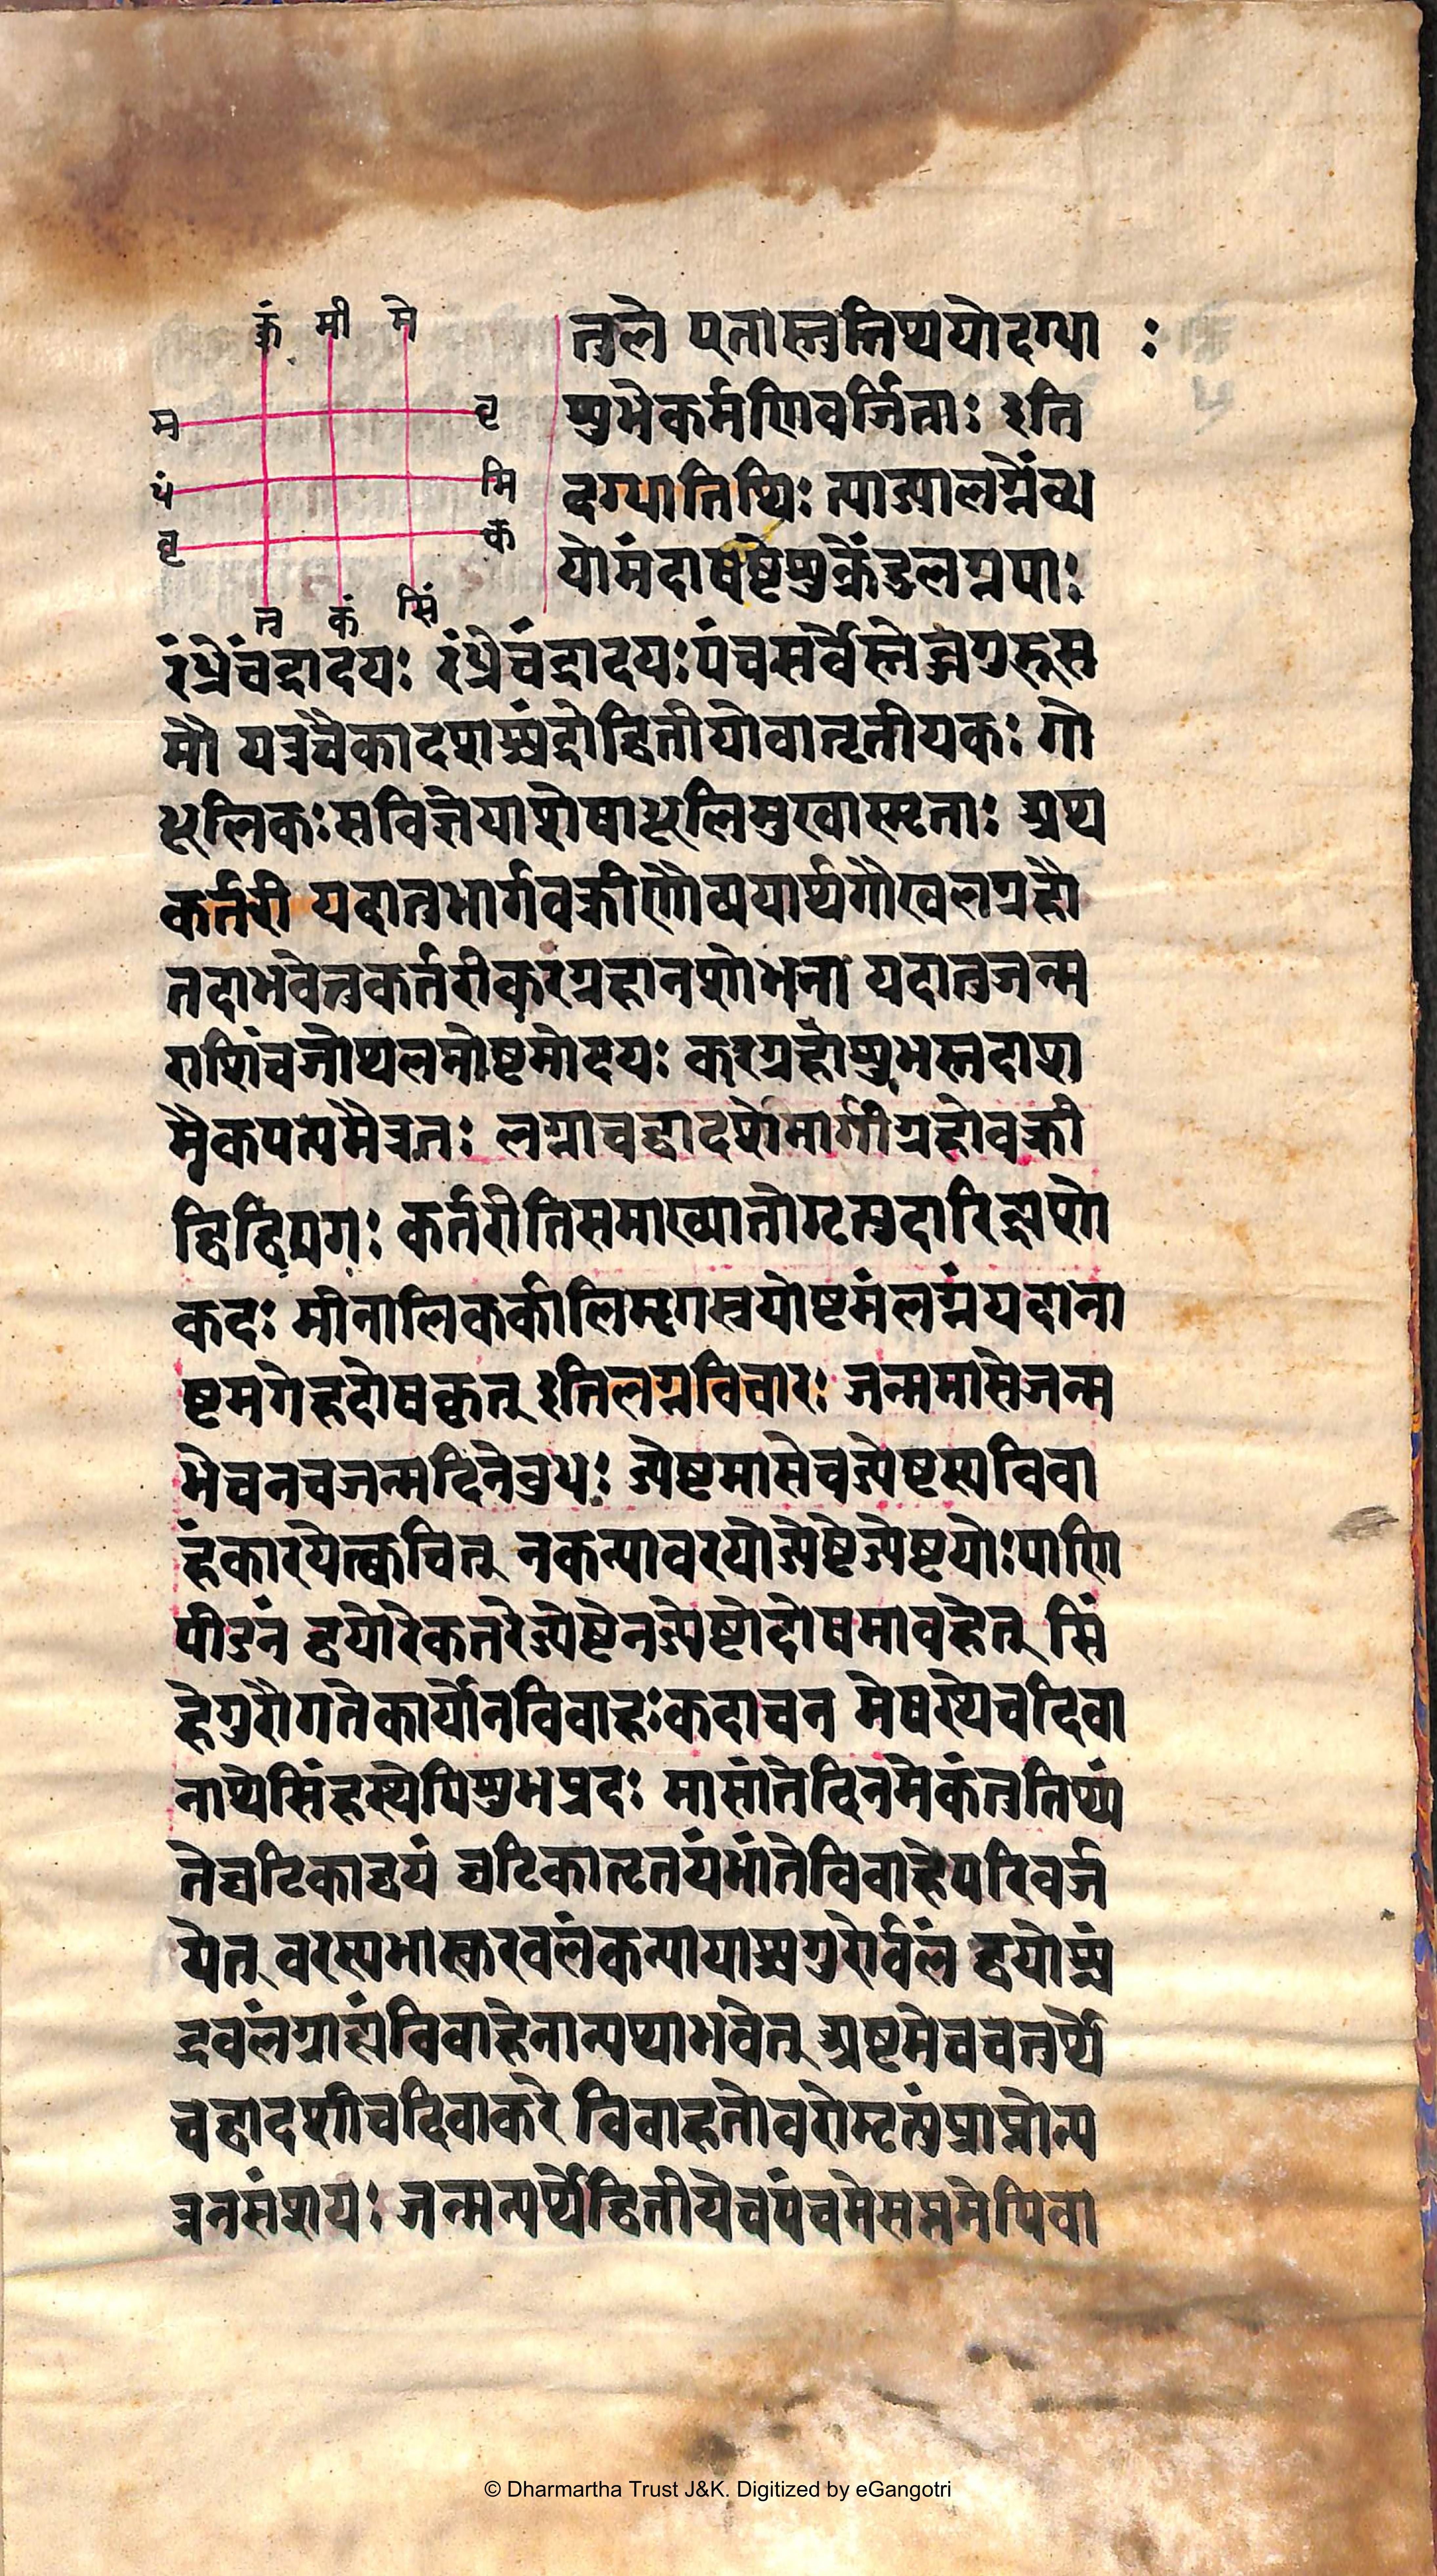 कुं मी मे
म वृ
धं मि
वृ क
तु कं सिं
तुले एतास्तुतिथयोदग्धा :
शुभेकर्मणिवर्जिताः इति
दग्धातिथिः त्याज्यालग्नेव्ध
योमंदाषष्टेशुक्रेंदुलग्नपाः
रंध्रेचंद्रादयः रंध्रेचंद्रादयःपंचसर्वेस्तेब्जगुरूस
मौ यत्रचैकादशश्चंद्रोद्वितीयोवातृतीयकः गो
धूलिकःसविज्ञेयाशेषाधूलिमुखास्मृताः अथ
कर्तरी यदातुभार्गवक्रीणौव्ययार्थगौखलग्रहौ
तदाभवेत्तुकर्तरीकरग्रहानशोभना यदातुजन्म
राशिंचजोथलमोष्टमोदयः करग्रहोशुभस्तदाशा
मैकपत्यमैत्रतः लग्नाचद्वादशेमार्गीग्रहोवक्री
द्विद्वियगः कर्तरीतिसमाख्यातोमृत्युदारिद्र्यशो
कदः मीनालिकर्कालिमृगस्त्रयोष्टमंलग्नंयदाना
ष्टमगेहदोषकृत् इतिलग्नविचारः जन्ममासेजन्म
भेचनचजन्मदिनेवुधः ज्येष्टमासेचज्येष्टस्यविवा
हंकारयेत्क्वचित् नकन्यावरयोज्येष्टेज्येष्टयोःपाणि
पीडनं द्वयोरेकतरेज्येष्टेनज्येष्टोदोषमावहेत् सिं
हेगुरौगतेकार्योनविवाहःकदाचन मेषस्थेचदिवा
नाथेसिंहस्थेपिशुभप्रदः मासांतेदिनमेकंतुतिथ्यं
तेघटिकाद्वयं घटिकातृतयंभांतेविवाहेपरिवर्ज
येत् वरस्यभास्करवलंकन्यायाश्चगुरोर्वलं द्वयोश्चं
द्रवलंग्राह्यंविवाहेनान्यथाभवेत् अष्टमेचचतुर्थे
चद्वादशीचदिवाकरे विवाहतोवरोमृत्युंप्राप्नोत्य
त्रनसंशयः जन्मन्यर्थेद्वितीयेचपंचमेसप्तमेपिवा
© Dharmartha Trust J&K. Digitized by eGangotri